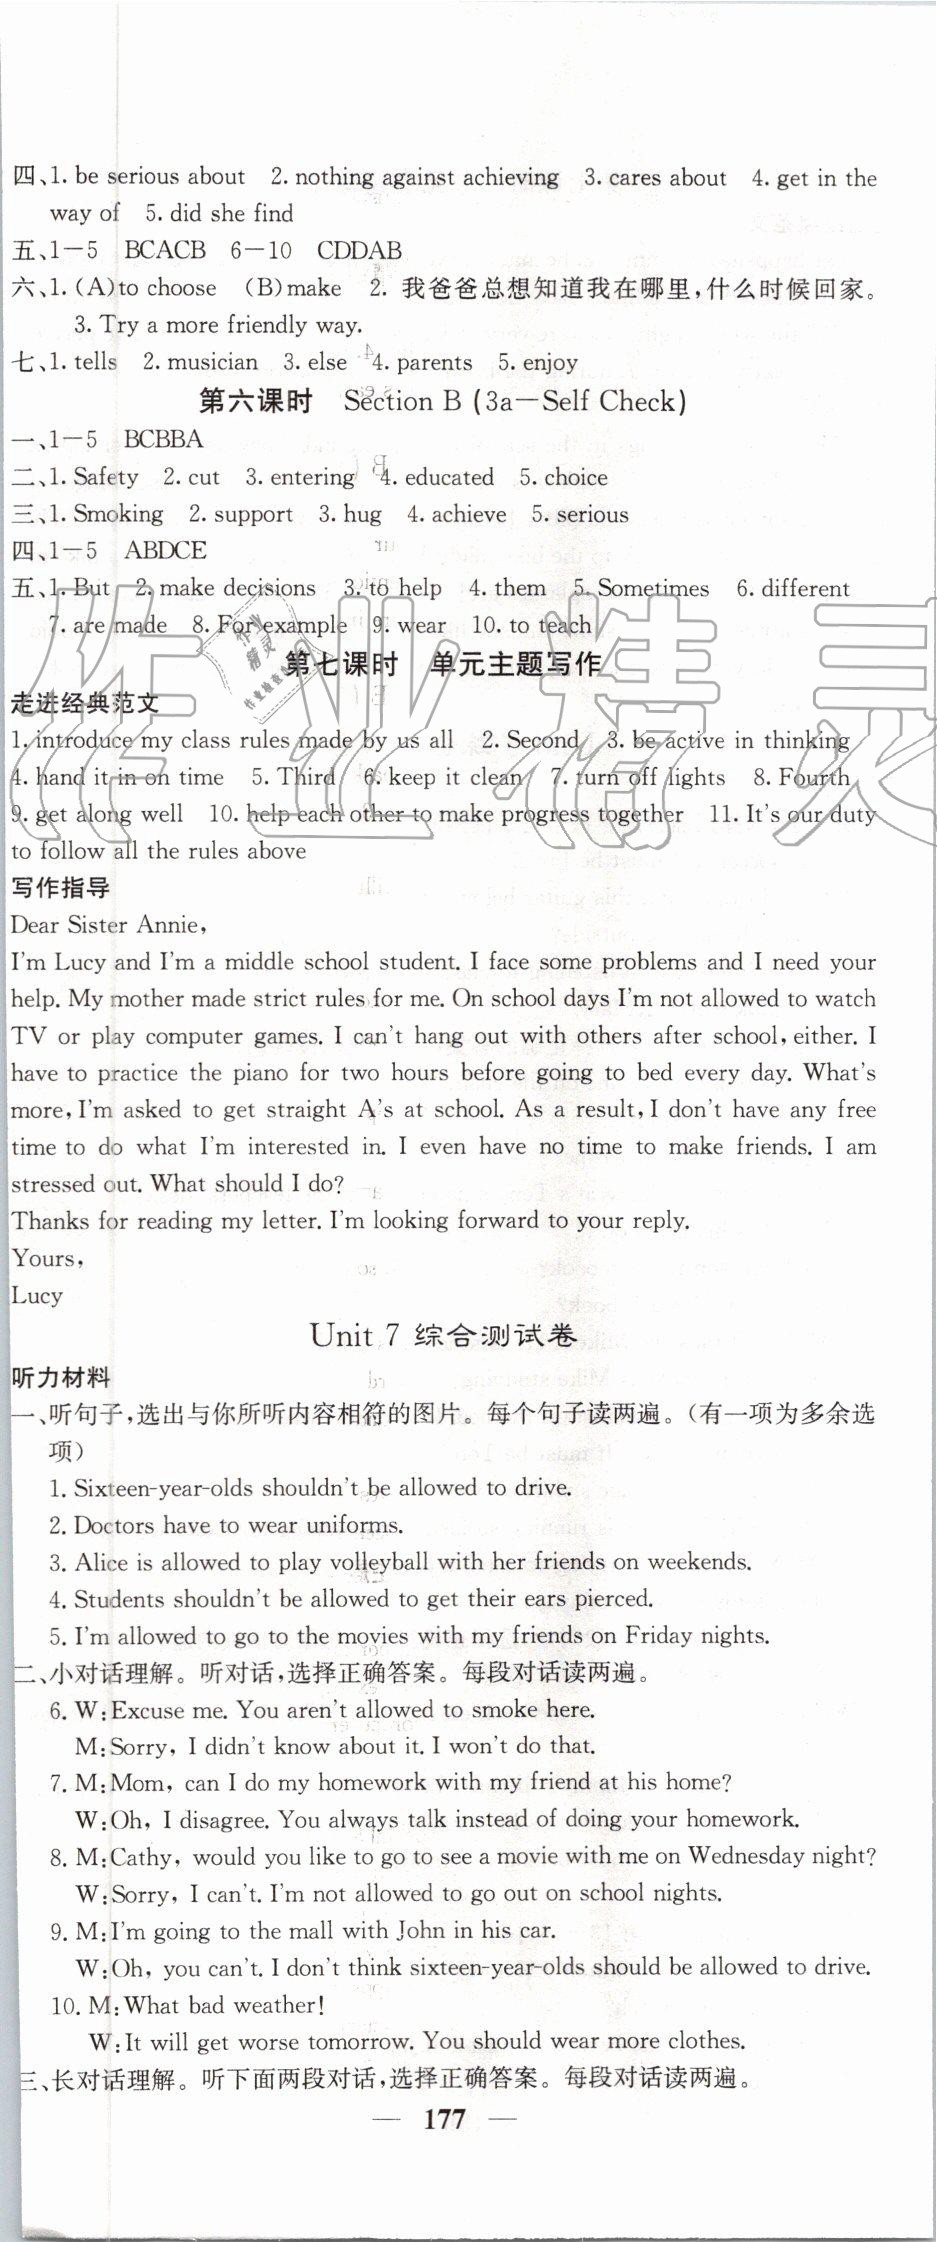 四、1. be serious about 2. nothing against achieving 3. cares about 4. get in the
way of 5. did she find
五、1－5 BCACB 6－10 CDDAB
六、1. (A)to choose (B)make 2. 我爸爸总想知道我在哪里,什么时候回家。
3. Try a more friendly way.
七、1. tells 2. musician 3. else 4. parents 5. enjoy
第六课时 Section B (3a－Self Check)
一、1－5 BCBBA
二、1. Safety 2. cut 3. entering 4. educated 5. choice
三、1. Smoking 2. support 3. hug 4. achieve 5. serious
四、1－5 ABDCE
五、1. But 2. make decisions 3. to help 4. them 5. Sometimes 6. different
7. are made 8. For example 9. wear 10. to teach
第七课时 单元主题写作
走进经典范文
1. introduce my class rules made by us all 2. Second 3. be active in thinking
4. hand it in on time 5. Third 6. keep it clean 7. turn off lights 8. Fourth
9. get along well 10. help each other to make progress together 11. It's our duty
to follow all the rules above
写作指导
Dear Sister Annie,
I'm Lucy and I'm a middle school student. I face some problems and I need your
help. My mother made strict rules for me. On school days I'm not allowed to watch
TV or play computer games. I can't hang out with others after school, either. I
have to practice the piano for two hours before going to bed every day. What's
more, I'm asked to get straight A's at school. As a result, I don't have any free
time to do what I'm interested in. I even have no time to make friends. I am
stressed out. What should I do?
Thanks for reading my letter. I'm looking forward to your reply.
Yours,
Lucy
Unit 7 综合测试卷
听力材料
一、听句子,选出与你所听内容相符的图片。每个句子读两遍。(有一项为多余选
项)
1. Sixteen-year-olds shouldn't be allowed to drive.
2. Doctors have to wear uniforms.
3. Alice is allowed to play volleyball with her friends on weekends.
4. Students shouldn't be allowed to get their ears pierced.
5. I'm allowed to go to the movies with my friends on Friday nights.
二、小对话理解。听对话,选择正确答案。每段对话读两遍。
6. W: Excuse me. You aren't allowed to smoke here.
M: Sorry, I didn't know about it. I won't do that.
7. M: Mom, can I do my homework with my friend at his home?
W: Oh, I disagree. You always talk instead of doing your homework.
8. M: Cathy, would you like to go to see a movie with me on Wednesday night?
W: Sorry, I can't. I'm not allowed to go out on school nights.
9. M: I'm going to the mall with John in his car.
W: Oh, you can't. I don't think sixteen-year-olds should be allowed to drive.
10. M: What bad weather!
W: It will get worse tomorrow. You should wear more clothes.
三、长对话理解。听下面两段对话,选择正确答案。每段对话读两遍。
— 177 —
作业精灵